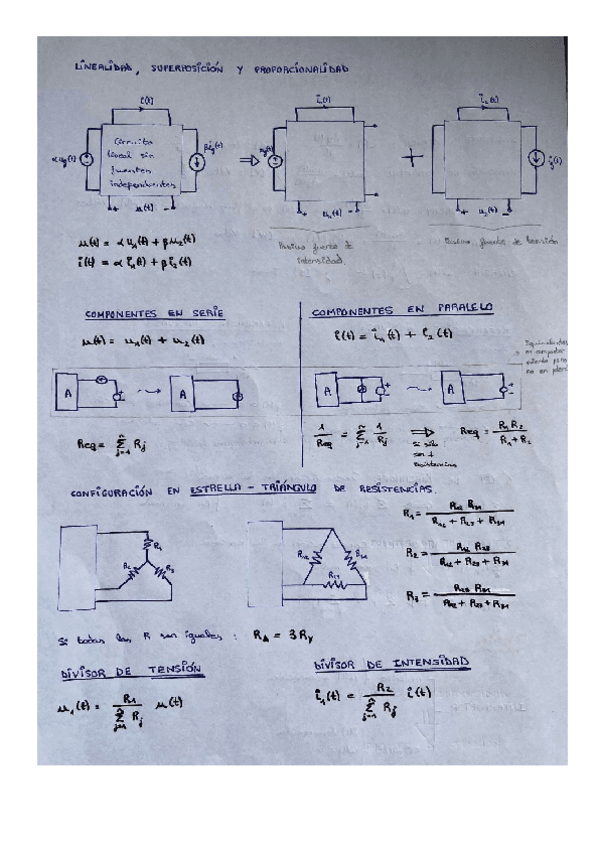 LINEALIDAD, SUPERPOSICIÓN Y PROPORCIONALIDAD
i(t)
i₁(t)
i₂(t)
αug(t)
Circuito lineal sin fuentes independientes
βig(t)
⇒
ug(t)
+
ig(t)
+ u(t) -
+ u₁(t) -
+ u₂(t) -
u(t) = α u₁(t) + β u₂(t)
i(t) = α i₁(t) + β i₂(t)
fuente de intensidad
fuente de tensión
COMPONENTES EN SERIE
u(t) = u₁(t) + u₂(t)
A
A
Req = Σ Rj
j=1
n
COMPONENTES EN PARALELO
i(t) = i₁(t) + i₂(t)
A
A
1/Req = Σ 1/Rj
j=1
n
⇒
si solo son 2 resistencias
Req = R₁R₂ / R₁+R₂
CONFIGURACIÓN EN ESTRELLA - TRIÁNGULO DE RESISTENCIAS.
R₁
R₂
R₃
R₁₂
R₃₁
R₂₃
R₁ = R₁₂ R₃₁ / R₁₂ + R₂₃ + R₃₁
R₂ = R₁₂ R₂₃ / R₁₂ + R₂₃ + R₃₁
R₃ = R₂₃ R₃₁ / R₁₂ + R₂₃ + R₃₁
Si todas las R son iguales: R△ = 3RY
DIVISOR DE TENSIÓN
u₁(t) = R₁ / Σ Rj u(t)
j=1
n
DIVISOR DE INTENSIDAD
i₁(t) = R₂ / Σ Rj i(t)
j=1
n